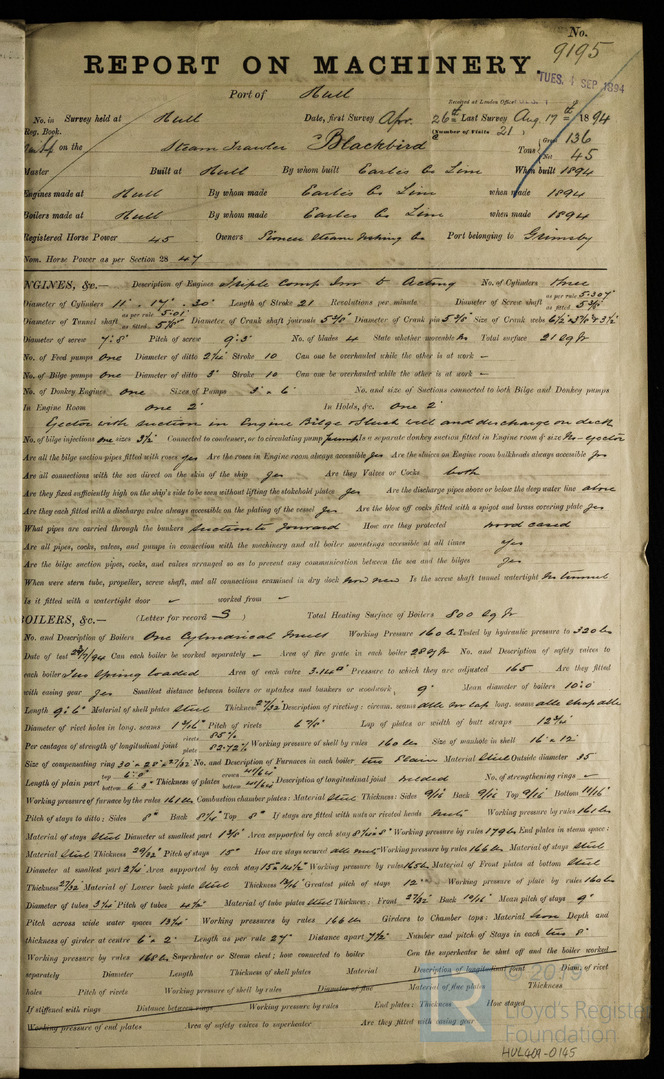 No. 9195
REPORT ON MACHINERY.
TUES. 4 SEP 1894
Port of Hull
Received at London Office
No. in Survey held at Hull Date, first Survey Apr. 26th Last Survey Aug. 17th 1894
Reg. Book. (Number of Visits 21)
on the Steam Trawler "Blackbird" Tons Gross 136 Net 45
Master Built at Hull By whom built Earles Co Lim When built 1894
Engines made at Hull By whom made Earles Co Lim when made 1894
Boilers made at Hull By whom made Earles Co Lim when made 1894
Registered Horse Power 45 Owners Pioneer Steam Fishing Co Port belonging to Grimsby
Nom. Horse Power as per Section 28 47
NGINES, &c.— Description of Engines Triple Comp Inv D Acting No. of Cylinders Three
Diameter of Cylinders 11" . 17" . 30" Length of Stroke 21 Revolutions per minute Diameter of Screw shaft as per rule 5.307 as fitted 5 3/8"
Diameter of Tunnel shaft as per rule 5.01 as fitted 5 1/8" Diameter of Crank shaft journals 5 3/8" Diameter of Crank pin 5 3/8" Size of Crank webs
Diameter of screw 7'.8" Pitch of screw 9'.3" No. of blades 4 State whether moveable No Total surface 21 sq ft
No. of Feed pumps one Diameter of ditto 2 1/4" Stroke 10 Can one be overhauled while the other is at work –
No. of Bilge pumps one Diameter of ditto 3" Stroke 10 Can one be overhauled while the other is at work –
No. of Donkey Engines one Sizes of Pumps 3" x 6" No. and size of Suctions connected to both Bilge and Donkey pumps
In Engine Room one 2" In Holds, &c. one 2"
Ejector with suction in Engine Bilge & Slush well and discharge on deck
No. of bilge injections one sizes 3 1/2" Connected to condenser, or to circulating pump pump Is a separate donkey suction fitted in Engine room & size No - ejector
Are all the bilge suction pipes fitted with roses yes Are the roses in Engine room always accessible yes Are the sluices on Engine room bulkheads always accessible yes
Are all connections with the sea direct on the skin of the ship yes Are they Valves or Cocks both
Are they fixed sufficiently high on the ship's side to be seen without lifting the stokehold plates yes Are the discharge pipes above or below the deep water line above
Are they each fitted with a discharge valve always accessible on the plating of the vessel yes Are the blow off cocks fitted with a spigot and brass covering plate yes
What pipes are carried through the bunkers suction to forward How are they protected wood cased
Are all pipes, cocks, valves, and pumps in connection with the machinery and all boiler mountings accessible at all times yes
Are the bilge suction pipes, cocks, and valves arranged so as to prevent any communication between the sea and the bilges yes
When were stern tube, propeller, screw shaft, and all connections examined in dry dock now new Is the screw shaft tunnel watertight no tunnel
Is it fitted with a watertight door – worked from –
BOILERS, &c.— (Letter for record S) Total Heating Surface of Boilers 800 sq ft
No. and Description of Boilers One Cylindrical Mult Working Pressure 160 lbs Tested by hydraulic pressure to 320 lbs
Date of test 24/7/94 Can each boiler be worked separately – Area of fire grate in each boiler 28 sq ft No. and Description of safety valves to
each boiler Two Spring loaded Area of each valve 3.14 Pressure to which they are adjusted 165 Are they fitted
with easing gear yes Smallest distance between boilers or uptakes and bunkers or woodwork, 9" Mean diameter of boilers 10'.0
Length 9'.6" Material of shell plates Steel Thickness 27/32 Description of riveting: circum. seams dble riv lap long. seams dble strap dble
Diameter of rivet holes in long. seams 1 3/16" Pitch of rivets Lap of plates or width of butt straps
Per centages of strength of longitudinal joint rivets 85% plate 82.72% Working pressure of shell by rules 160 lbs Size of manhole in shell 16" x 12"
Size of compensating ring 30" x 28" x 27/32 No. and Description of Furnaces in each boiler two Plain Material Steel Outside diameter 35
Length of plain part top 6'.8" bottom 6'.3" Thickness of plates crown bottom Description of longitudinal joint welded No. of strengthening rings –
Working pressure of furnace by the rules 161 lbs Combustion chamber plates: Material Steel Thickness: Sides 9/16 Back 9/16 Top 9/16 Bottom 11/16"
Pitch of stays to ditto: Sides 8" Back 8 1/4" Top 8" If stays are fitted with nuts or riveted heads nuts Working pressure by rules 161 lbs
Material of stays Steel Diameter at smallest part 1 3/8" Area supported by each stay Working pressure by rules 179 lbs End plates in steam space:
Material Steel Thickness 29/32 Pitch of stays 15" How are stays secured dble nuts Working pressure by rules 166 lbs Material of stays Steel
Diameter at smallest part 2 1/4" Area supported by each stay Working pressure by rules 165 lbs Material of Front plates at bottom Steel
Thickness 27/32 Material of Lower back plate Steel Thickness 13/16" Greatest pitch of stays 12" Working pressure of plate by rules 160 lbs
Diameter of tubes 3 1/4 Pitch of tubes 4 1/2" Material of tube plates Steel Thickness: Front 27/32 Back 13/16 Mean pitch of stays 9"
Pitch across wide water spaces 13 1/4" Working pressures by rules 166 lbs Girders to Chamber tops: Material Iron Depth and
thickness of girder at centre 6" x 2" Length as per rule 27" Distance apart 7 1/2" Number and pitch of Stays in each two 8"
Working pressure by rules 168 lbs Superheater or Steam chest; how connected to boiler Can the superheater be shut off and the boiler worked
separately Diameter Length Thickness of shell plates Material Description of longitudinal joint Diam. of rivet
holes Pitch of rivets Working pressure of shell by rules Diameter of flue Material of flue plates Thickness
If stiffened with rings Distance between rings Working pressure by rules End plates: Thickness How stayed
Working pressure of end plates Area of safety valves to superheater Are they fitted with easing gear
© 2019
Lloyd's Register
Foundation
HUL409-0145